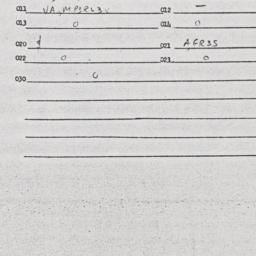 011 VA, MPSRL3, 012 —
013 0 014 0
020 021 AGR35
022 0 023 0
030 0